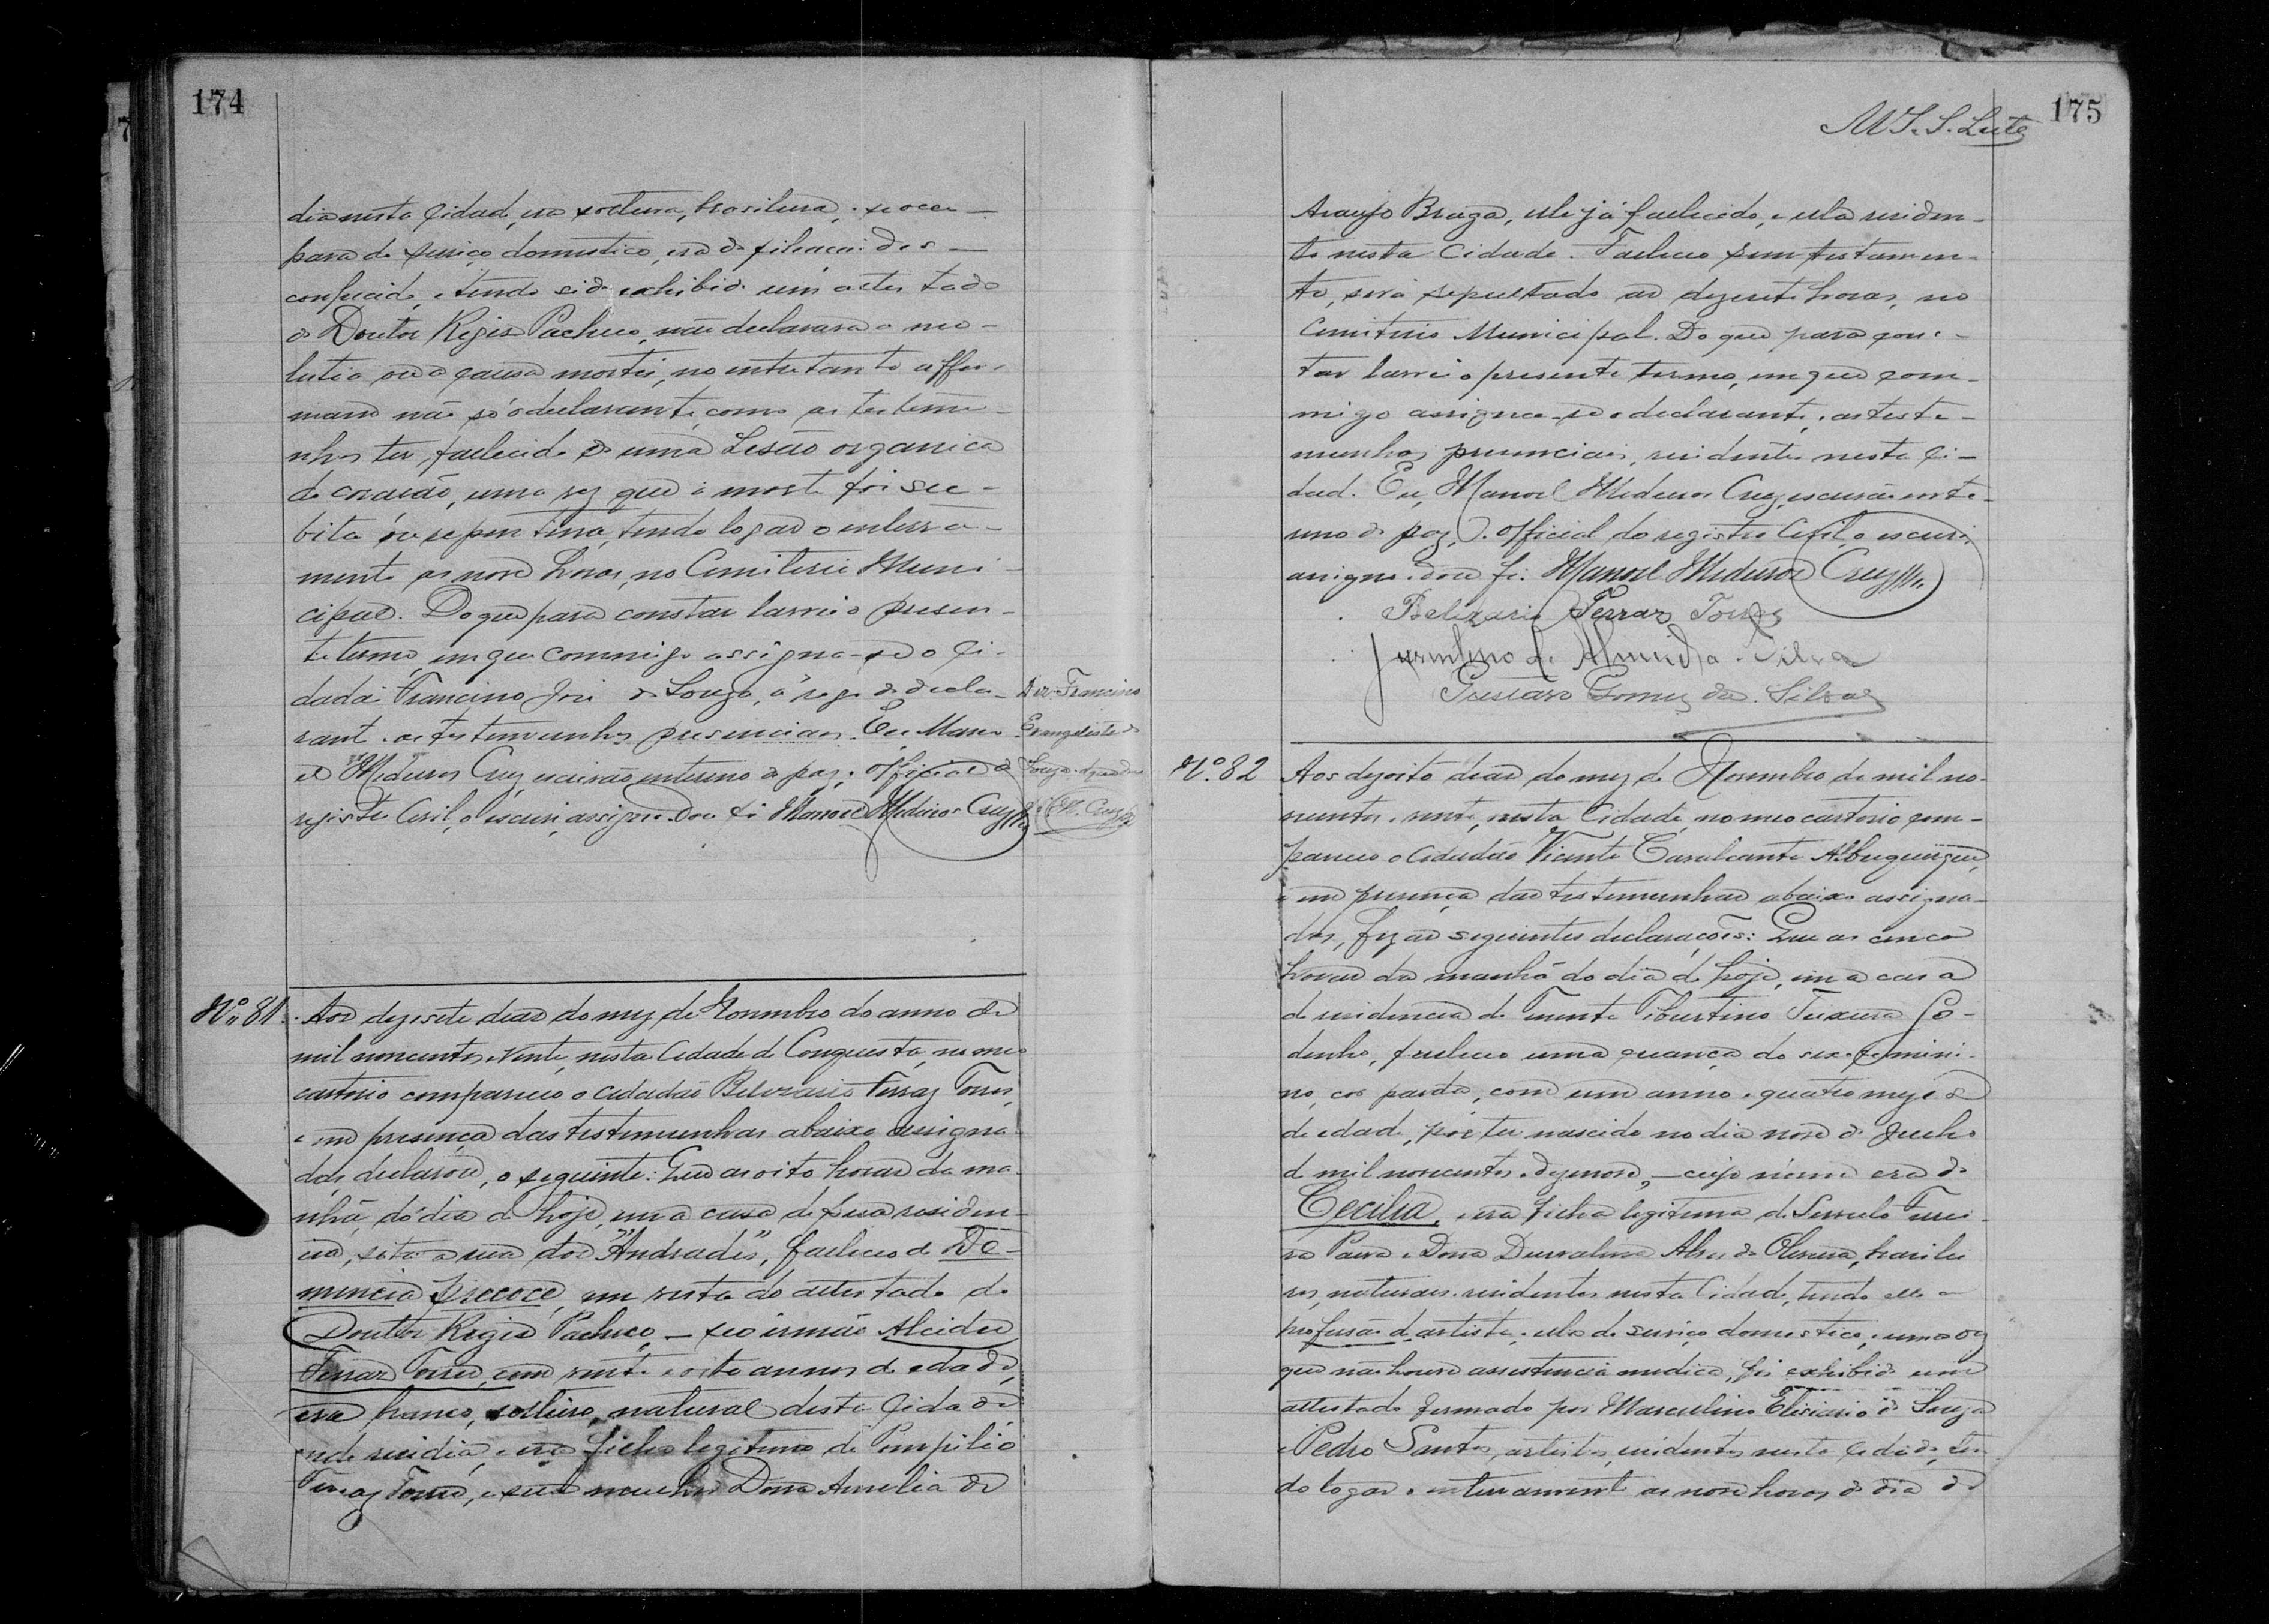 174
dia nesta Cidade, era solteira, brasileira, e se occu-
pava do serviço domestico, era de filiação des-
conhecida, e tendo sido exhibido um attestado
do Doutor Regis Pacheco, não declarava a mo-
lestia ou a causa mortis, no entretanto affir-
mam não só o declarante, como as testemu-
nhas ter fallecido de uma Lesão organica
do coração, uma vez que a morte foi su-
bita ou repentina, tendo logar o enterra-
mento as nove horas, no Cemiterio Muni-
cipal. Do que para constar lavrei o presen-
te termo em que commigo assigna-se o Ci-
dadão Francino José de Souza, á rogo do decla-
rante e as testemunhas presenciaes. Eu Mano-
el Medeiros Cruz, escrivão interino de paz e official do
registro Civil, o escrevi, assigno. Dou fé Manoel Medeiros Cruz
Diz Francino
Evangelista de
Souza
M. Cruz
Nº 81. Aos dezesete dias do mez de Novembro do anno de
mil novecentos e vinte, nesta Cidade de Conquista, no meo
cartorio compareceo o cidadão Belizario Ferraz Torres,
e em presença das testemunhas abaixo assigna-
das, declarou, o seguinte: Que as oito horas da ma-
nhã, do dia de hoje, em a casa de sua residen-
cia, sita a rua dos "Andrades", falleceo de De-
mencia precoce, em vista do attestado do
Doutor Regis Pacheco, - seo irmão Alcides
Ferraz Torres, com vinte e oito annos de edade,
era branco, solteiro, natural desta Cidade
onde residia, e era filho legitimo de Pompilio
Ferraz Torres, e sua mulher Dona Amelia de
175
M S. S. Leite
Araujo Braga, elle já fallecido, e ella residen-
te nesta Cidade. Falleceo sem testamen-
to, será sepultado as dezesete horas, no
Cemiterio Municipal. Do que para cons-
tar lavrei o presente termo, em que com-
migo assigna-se o declarante, e as teste-
munhas presenciaes, residentes nesta Ci-
dade. Eu, Manoel Medeiros Cruz, escrivão inte-
rino de paz, e official do registro Civil, o escrevi,
assigno e dou fé. Manoel Medeiros Cruz
Belizario Ferraz Torres
Juvelino de Almeida e Silva
Gustavo Gomes da Silva
Nº 82 Aos dezoito dias do mez de Novembro de mil no-
vecentos e vinte, nesta Cidade, no meo cartorio com-
pareceo o cidadão Vicente Cavalcante Albuquerque,
e em presença das testemunhas abaixo assigna-
das, fez as seguintes declarações: Que as cinco
horas da manhã do dia de hoje, em a casa
de residencia do Tenente Tiburtino Teixeira Co-
dinho, falleceo uma creança do sexo femini-
no, cor parda, com um anno e quatro mezes
de edade, por ter nascido no dia nove de Julho
de mil novecentos e dezenove, - cujo nome era de
Cecilia, era filha legitima de Servulo
Paiva e Dona Durvalina Alves de Oliveira, brasilei-
ros, naturaes e residentes nesta Cidade, tendo elle a
profissão d'artista, ella do serviço domestico, e uma vez
que não houve assistencia medica, foi exhibido um
attestado firmado por Marculino Elisiario de Souza
e Pedro Santos, artistas, residentes nesta Cidade, ten-
do logar o enterramento as nove horas do dia de